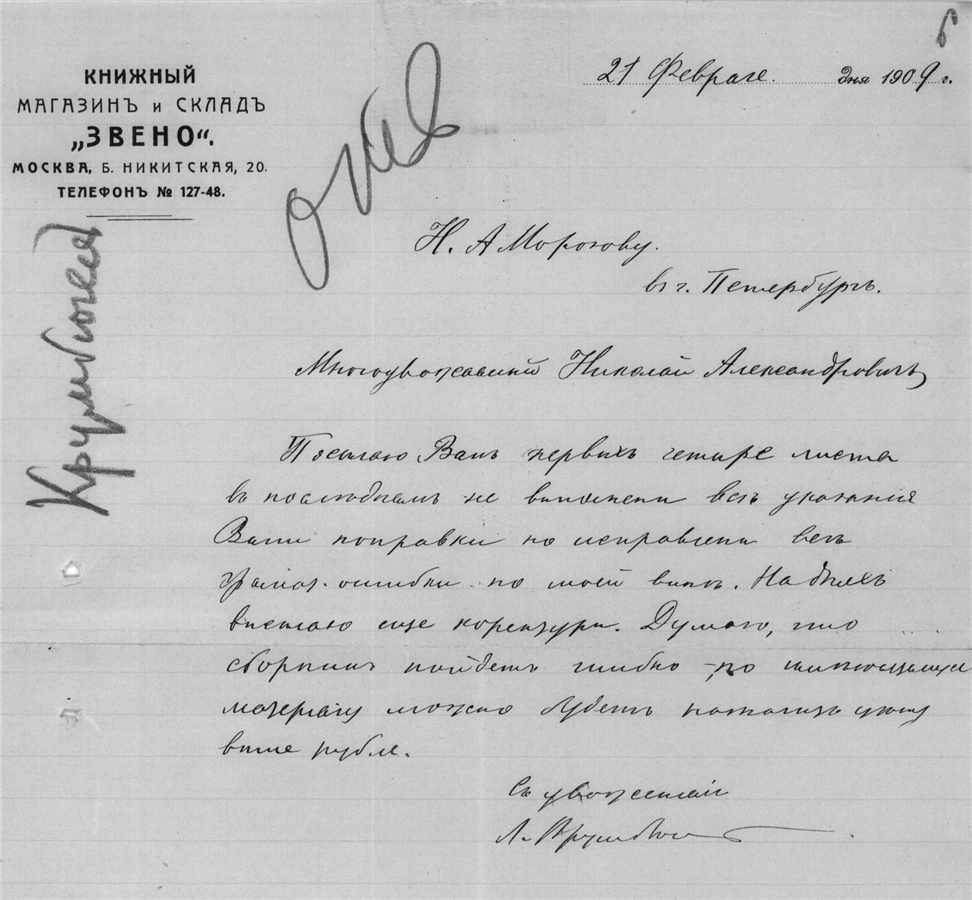 КНИЖНЫЙ
МАГАЗИНЪ и СКЛАДЪ
„ЗВЕНО“.
МОСКВА, Б. НИКИТСКАЯ, 20.
ТЕЛЕФОНЪ № 127-48.
21 Февраля дня 1909 г.
Н. А Морозову.
въ г. Петербургъ.
Многоуважаемый Николай Александровичъ
Посылаю Вамъ первыхъ четыре листа
въ последнемъ не выполнены всѣ указанія
Вами поправки но исправлены всѣ
грамат. ошибки по моей винѣ. На дняхъ
вышлю еще коректуры. Думаю, что
сборникъ пойдетъ шибко
можно будетъ
выше рубля.
Съ уваженіемъ